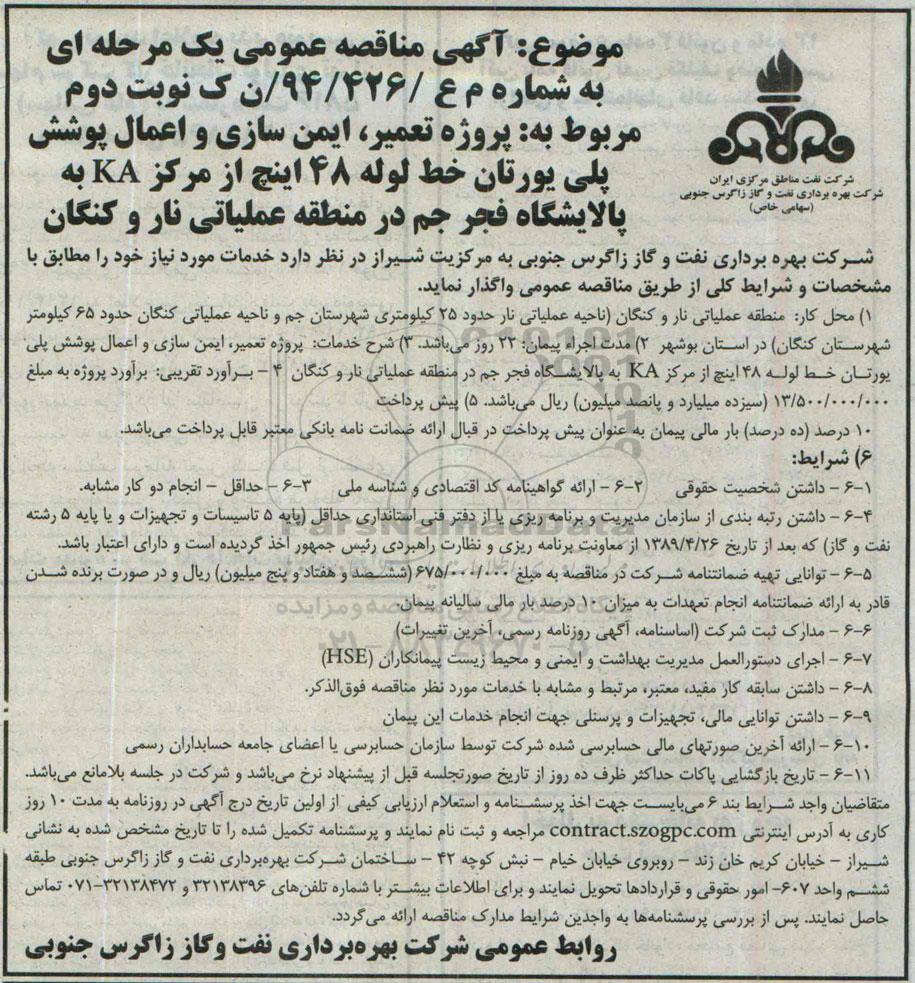 موضوع: آگهی مناقصه عمومی یک مرحله ای
به شماره م ع /۹۴/۴۲۶/ن ک نوبت دوم
مربوط به: پروژه تعمیر، ایمن سازی و اعمال پوشش
پلی یورتان خط لوله ۴۸ اینچ از مرکز KA به
پالایشگاه فجر جم در منطقه عملیاتی نار و کنگان
شرکت نفت مناطق مرکزی ایران
شرکت بهره برداری نفت و گاز زاگرس جنوبی
(سهامی خاص)
شرکت بهره برداری نفت و گاز زاگرس جنوبی به مرکزیت شیراز در نظر دارد خدمات مورد نیاز خود را مطابق با
مشخصات و شرایط کلی از طریق مناقصه عمومی واگذار نماید.
۱) محل کار: منطقه عملیاتی نار و کنگان (ناحیه عملیاتی نار حدود ۲۵ کیلومتری شهرستان جم و ناحیه عملیاتی کنگان حدود ۶۵ کیلومتر
شهرستان کنگان) در استان بوشهر ۲) مدت اجراء پیمان: ۲۲ روز می‌باشد. ۳) شرح خدمات: پروژه تعمیر، ایمن سازی و اعمال پوشش پلی
یورتان خط لوله ۴۸ اینچ از مرکز KA به پالایشگاه فجر جم در منطقه عملیاتی نار و کنگان ۴ - برآورد تقریبی: برآورد پروژه به مبلغ
۱۳/۵۰۰/۰۰۰/۰۰۰ (سیزده میلیارد و پانصد میلیون) ریال می‌باشد. ۵) پیش پرداخت
۱۰ درصد (ده درصد) بار مالی پیمان به عنوان پیش پرداخت در قبال ارائه ضمانت نامه بانکی معتبر قابل پرداخت می‌باشد.
۶) شرایط:
۶-۱ - داشتن شخصیت حقوقی ۶-۲ - ارائه گواهینامه کد اقتصادی و شناسه ملی ۶-۳ - حداقل - انجام دو کار مشابه.
۶-۴ - داشتن رتبه بندی از سازمان مدیریت و برنامه ریزی یا از دفتر فنی استانداری حداقل (پایه ۵ تاسیسات و تجهیزات و یا پایه ۵ رشته
نفت و گاز) که بعد از تاریخ ۱۳۸۹/۴/۲۶ از معاونت برنامه ریزی و نظارت راهبردی رئیس جمهور اخذ گردیده است و دارای اعتبار باشد.
۶-۵ - توانایی تهیه ضمانتنامه شرکت در مناقصه به مبلغ ۶۷۵/۰۰۰/۰۰۰ (ششصد و هفتاد و پنج میلیون) ریال و در صورت برنده شدن
قادر به ارائه ضمانتنامه انجام تعهدات به میزان ۱۰ درصد بار مالی سالیانه پیمان.
۶-۶ - مدارک ثبت شرکت (اساسنامه، آگهی روزنامه رسمی، آخرین تغییرات)
۶-۷ - اجرای دستورالعمل مدیریت بهداشت و ایمنی و محیط زیست پیمانکاران (HSE)
۶-۸ - داشتن سابقه کار مفید، معتبر، مرتبط و مشابه با خدمات مورد نظر مناقصه فوق‌الذکر.
۶-۹ - داشتن توانایی مالی، تجهیزات و پرسنلی جهت انجام خدمات این پیمان
۶-۱۰ - ارائه آخرین صورتهای مالی حسابرسی شده شرکت توسط سازمان حسابرسی یا اعضای جامعه حسابداران رسمی
۶-۱۱ - تاریخ بازگشایی پاکات حداکثر ظرف ده روز از تاریخ صورتجلسه قبل از پیشنهاد نرخ می‌باشد و شرکت در جلسه بلامانع می‌باشد.
متقاضیان واجد شرایط بند ۶ می‌بایست جهت اخذ پرسشنامه و استعلام ارزیابی کیفی از اولین تاریخ درج آگهی در روزنامه به مدت ۱۰ روز
کاری به آدرس اینترنتی contract.szogpc.com مراجعه و ثبت نام نمایند و پرسشنامه تکمیل شده را تا تاریخ مشخص شده به نشانی
شیراز - خیابان کریم خان زند - روبروی خیابان خیام - نبش کوچه ۴۲ - ساختمان شرکت بهره‌برداری نفت و گاز زاگرس جنوبی طبقه
ششم واحد ۶۰۷- امور حقوقی و قراردادها تحویل نمایند و برای اطلاعات بیشتر با شماره تلفن‌های ۳۲۱۳۸۳۹۶ و ۳۲۱۳۸۴۷۲-۰۷۱ تماس
حاصل نمایند. پس از بررسی پرسشنامه‌ها به واجدین شرایط مدارک مناقصه ارائه می‌گردد.
روابط عمومی شرکت بهره‌برداری نفت وگاز زاگرس جنوبی
ParsNamadData